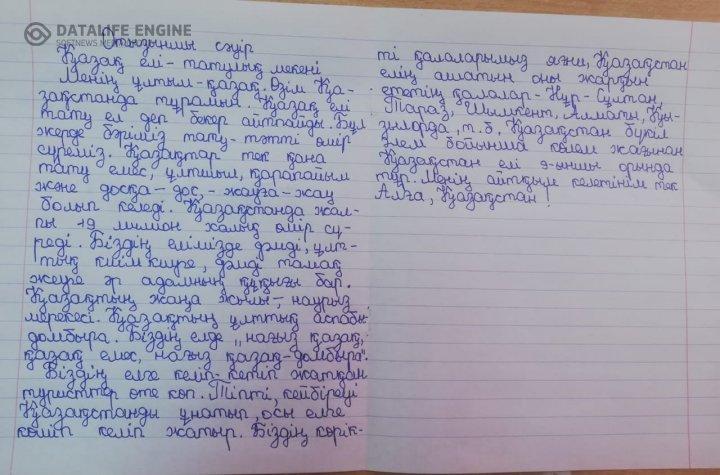 DATALIFE ENGINE
SOFTNEWS MEDIA
Отызыншы сәуір
Қазақ елі - татулық мекені
Менің ұлтым - қазақ. Өзім Қа-
зақстанда тұрамын. Қазақ елі
тату ел деп бекер айтпайды. Бұл
жерде бәріміз тату - тәтті өмір
сүреміз. Қазақтар тек қана
тату емес, ұлтшыл, қарапайым
және досқа - дос, - жауға - жау
болып келеді. Қазақстанда жал-
пы 19 милион халық өмір сү-
реді. Біздің елімізде дәмді, ұлт-
тық киім киюге, дәмді тамақ
жеуге әр адамның құқығы бар.
Қазақтың жаңа жылы -, наурыз
мерекесі. Қазақтың ұлттық аспабы
домбыра. Біздің елде „нағыз қазақ,
қазақ емес, нағыз қазақ - домбыра".
Біздің елге келіп - кетіп жатқан
туристтер өте көп. Тіпті, кейбіреуі
Қазақстанды ұнатып, осы елге
көшіп келіп жатыр. Біздің көрік-
ті қалаларымыз яғни, Қазақстан
елің ашатын оны жарқын
ететін қалалар - Нұр - Сұлтан,
Тараз, Шымкент, Алматы, Қы-
зылорда, т. б. Қазақстан бүкіл
әлем бойынша көлем жағынан
Қазақстан елі 9-ыншы орында
тұр. Менің айтқым келетінім тек
Алға, Қазақстан!